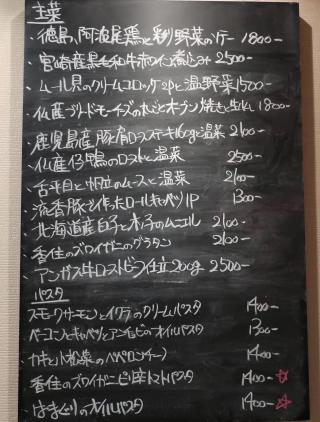 主菜
徳島、阿波尾鶏と彩り野菜のソテー 1800-
宮崎産黒毛和牛ホワイン煮込み 2500-
ムール貝のクリームコロッケ2pと温野菜 1500-
仏産 オーブン焼きと生ハム 1800-
鹿児島産豚肩ロースステーキ160gと温菜 2100-
仏産仔鴨のローストと温菜 2500-
舌平目と帆立のムースと温菜 2100-
流香豚で作ったロールキャベツ1P 1300-
北海道産白子と木の子のムニエル 2100-
香住のズワイガニのグラタン 2100-
アンガス牛ローストビーフ仕立200g 2500-
パスタ
スモークサーモンとイクラのクリームパスタ 1400-
ベーコンとキャベツとアンチョビのオイルパスタ 1300-
カキと小松菜のペペロンチーノ 1400-
香住のズワイガニピリ辛トマトパスタ 1400-☆
はまぐりのオイルパスタ 1400-☆